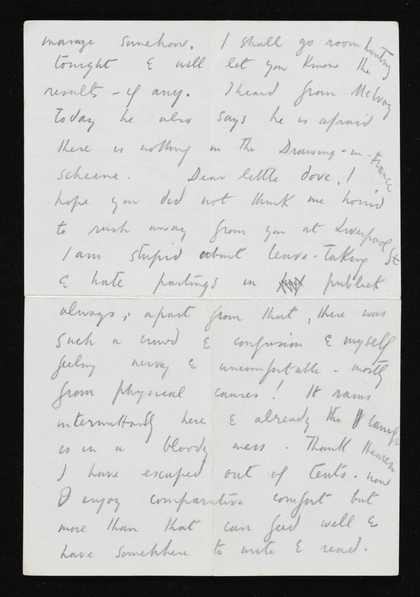 manage somehow. I shall go room hunting
tonight & will let you know the
results - if any. I heard from McEvoy
today he also says he is afraid
there is nothing in the Drawing-in-France
scheme. Dear little dove, I
hope you did not think me horrid
to rush away from you at Liverpool St
I am stupid about leave-taking
& hate partings in public
always; apart from that, there was
such a crowd & confusion & myself
feeling nervy & uncomfortable - mostly
from physical causes! It rains
intermittently here & already the camp
is in a bloody mess. Thank Heaven
I have escaped out of tents. now
I enjoy comparative comfort but
more than that can feed well &
have somewhere to write & read.